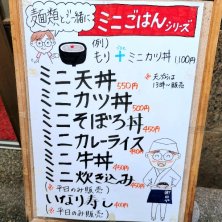 麺類と一緒に
ミニごはんシリーズ
(例)
もり+ミニカツ丼 1100円
ミニ天丼 550円
※天ぷらは
13時〜販売
ミニカツ丼 500円
ミニそぼろ丼 450円
ミニカレーライス 400円
ミニ牛丼 450円
ミニ炊き込み 350円
※平日のみ販売)
いなり寿し 400円
※(平日のみ販売)